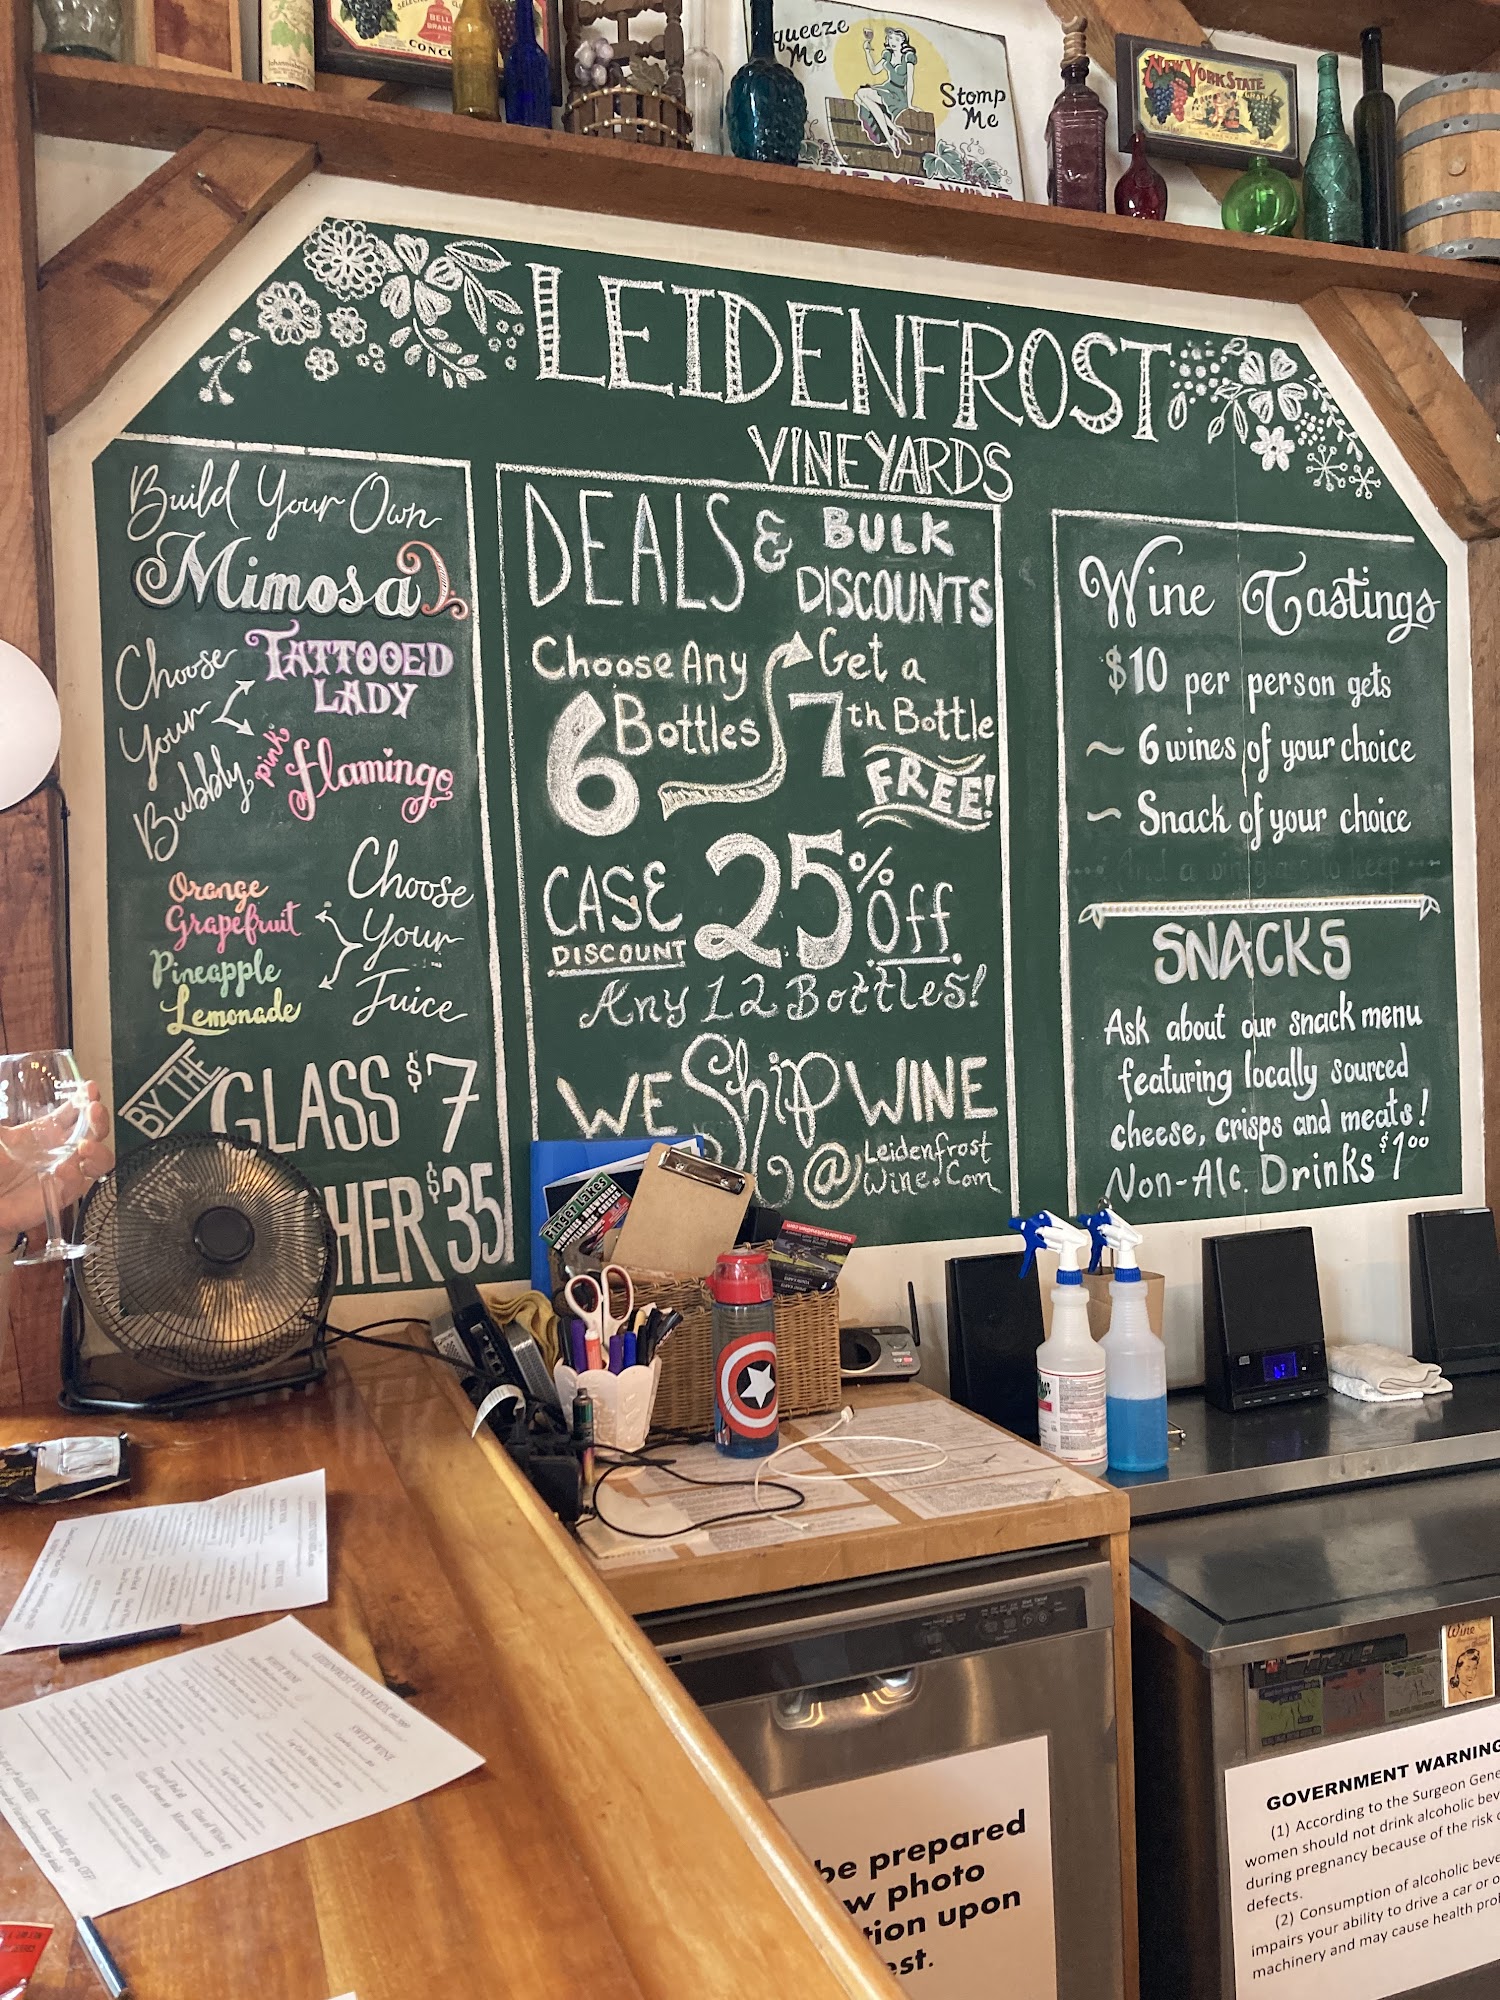 BELL
BRAND
CONCO
Squeeze
Me
Stomp
Me
NEW YORK STATE
LEIDENFROST
VINEYARDS
Build Your Own
Mimosa
Choose
Your
Bubbly
TATTOOED
LADY
pink
flamingo
Orange
Grapefruit
Pineapple
Lemonade
Choose
Your
Juice
BY THE
GLASS $7
HER $35
DEALS & BULK
DISCOUNTS
Choose Any
6 Bottles
Get a
7th Bottle
FREE!
CASE
DISCOUNT
25% Off
Any 12 Bottles!
WE Ship WINE
@ Leidenfrost
Wine.Com
Wine Tastings
$10 per person gets
~ 6 wines of your choice
~ Snack of your choice
And a wineglass to keep
SNACKS
Ask about our snack menu
featuring locally sourced
cheese, crisps and meats!
Non-Alc. Drinks $1.00
Finger Lakes
LEIDENFROST VINEYARDS
WHITE WINE
SWEET WINE
be prepared
w photo
tion upon
est.
Wine
GOVERNMENT WARNING
(1) According to the Surgeon Gene
women should not drink alcoholic bev
during pregnancy because of the risk o
defects.
(2) Consumption of alcoholic beve
impairs your ability to drive a car or o
machinery and may cause health pro